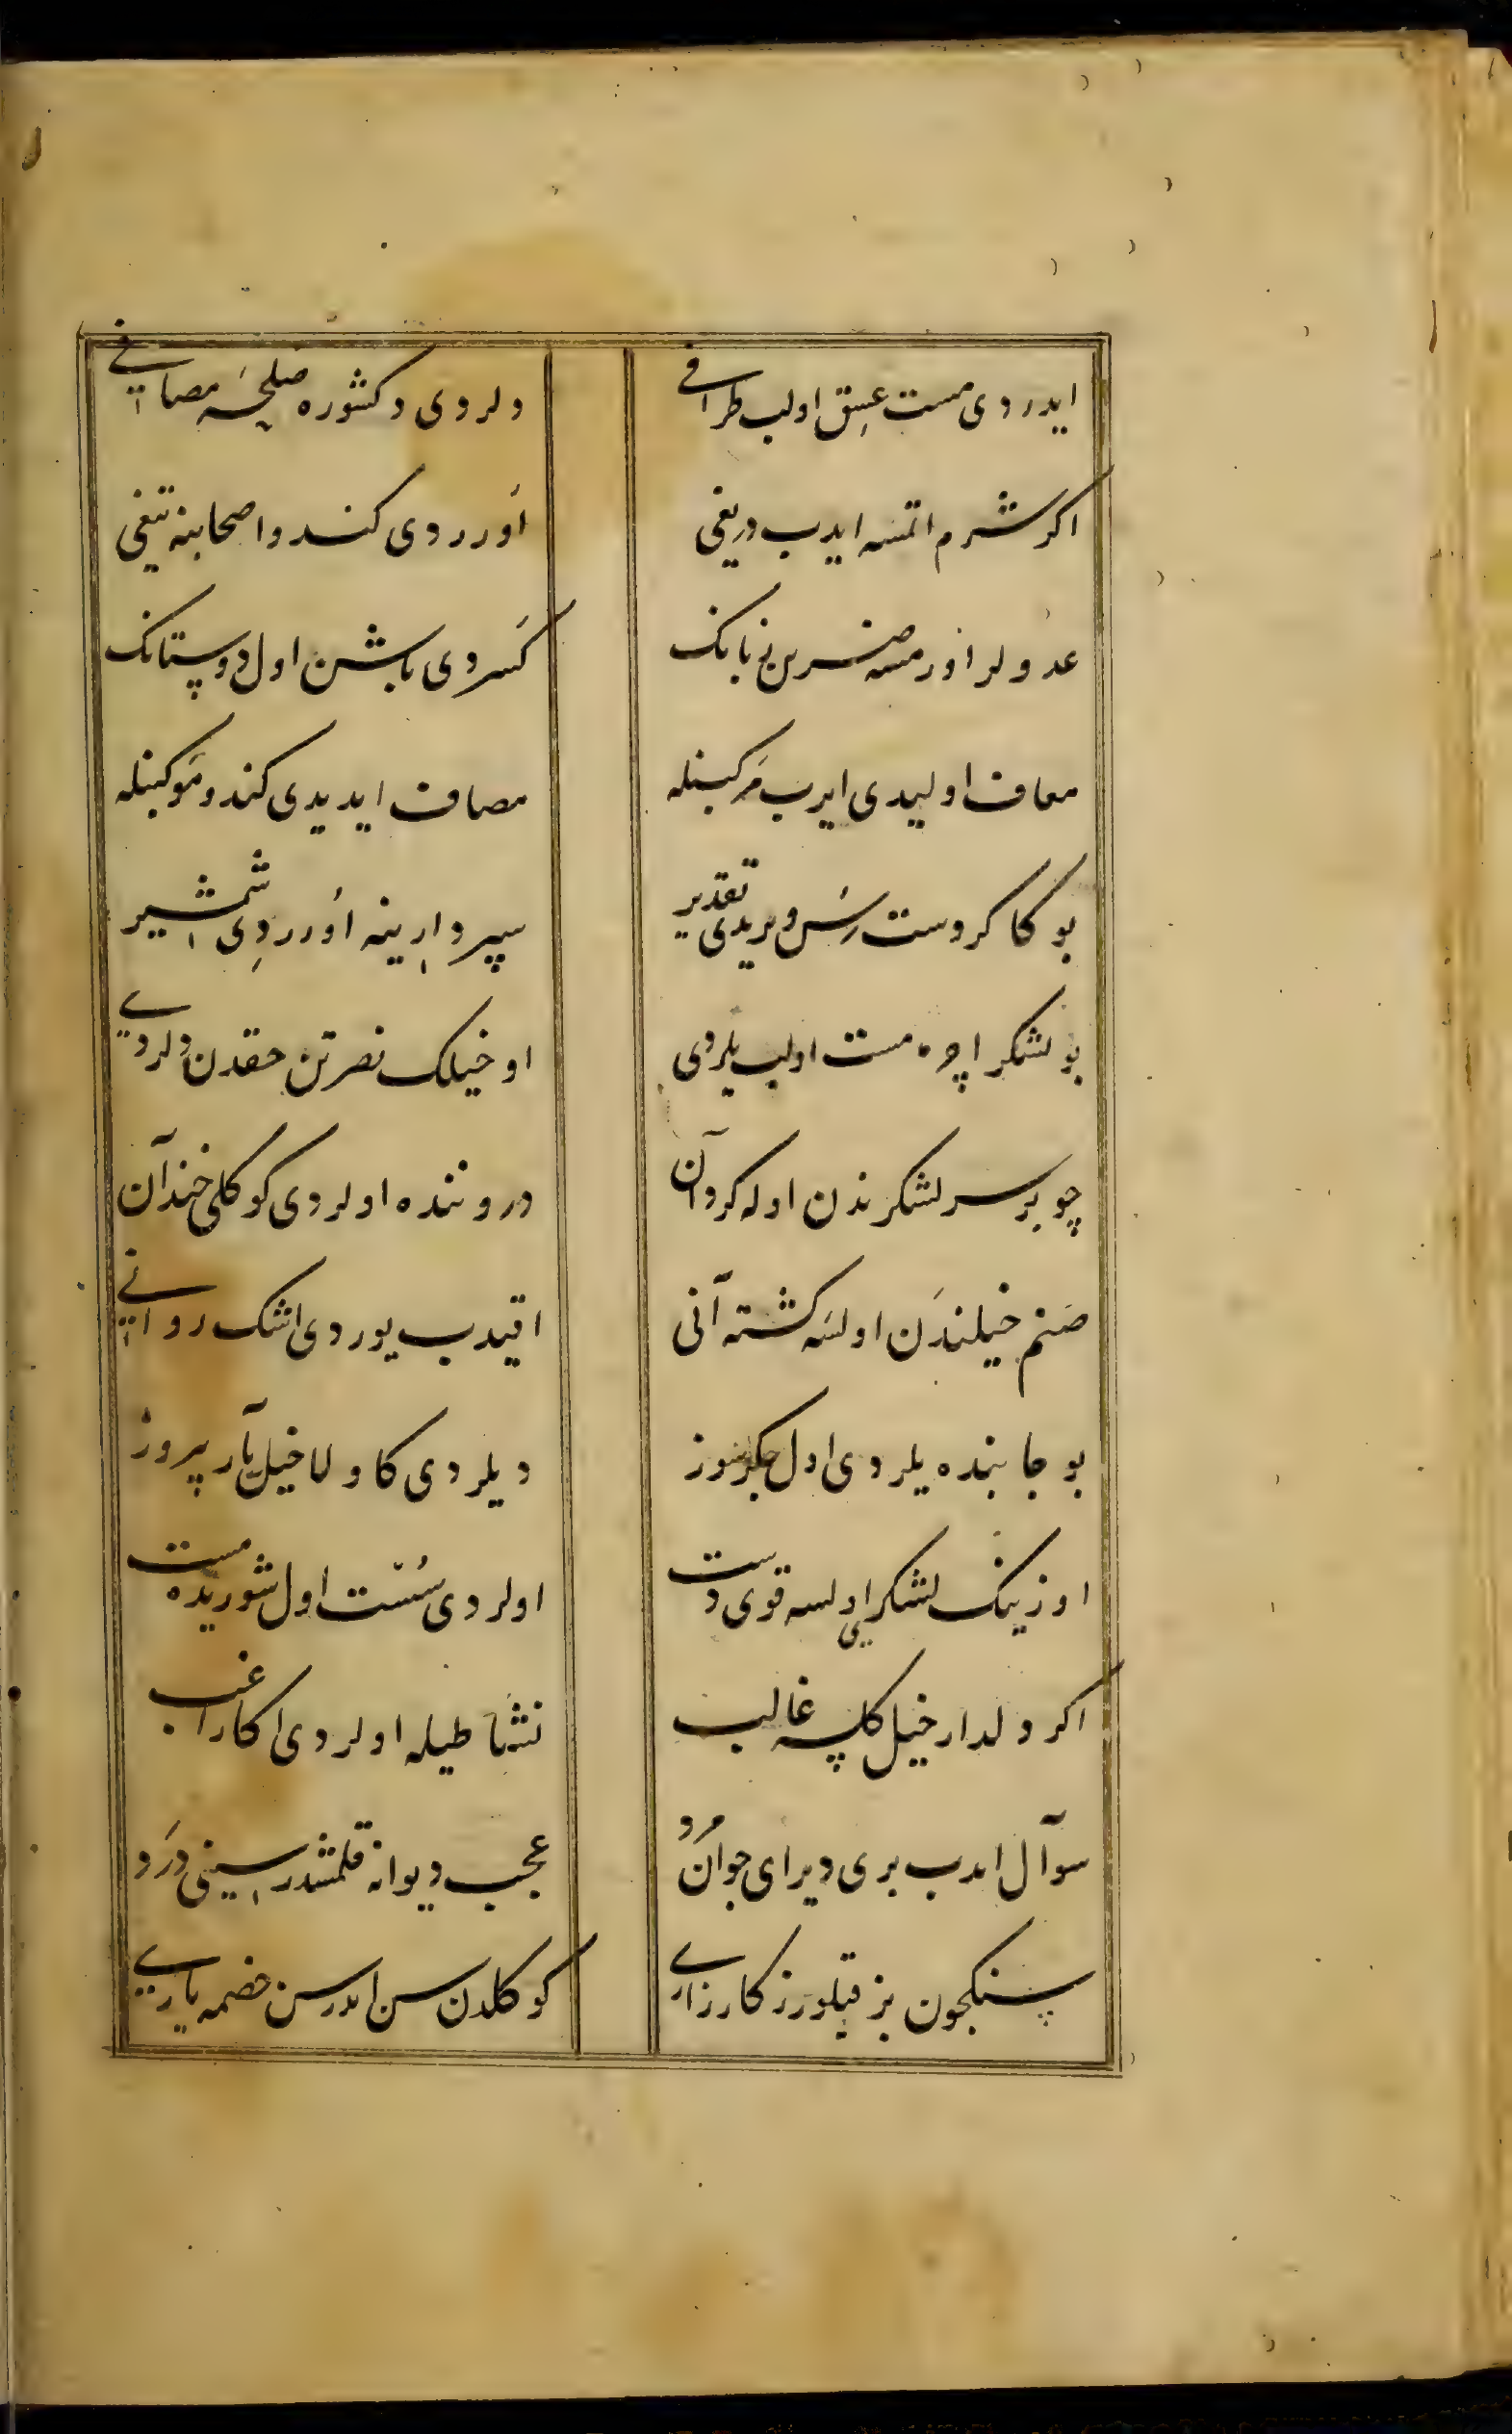 ایدردی مست عشق اولب طرافی
دلردی دکشوره صلحیه مصافی
اکر شرم اتمسه ایدب دریغی
اوردی کندو اصحابنه تیغی
عدولر اورمسه ضربن نابک
کسردی باشن اول دوستانک
معاف اولیدی ایرب مرکبنله
مصاف ایدیدی کندو موکبنله
بو کا کر دست رس ویریدی تقدیر
سپروارینه اوررردی شمشیر
بو لشکر اچره مست اولب یلردی
او خیلک نصرتن حقدن دلردی
چو بر سر لشکرندن اوله کردان
دروننده اولردی کوکلی خندان
صنم خیلندن اولسه کشته آنی
اقیدب یوردی اشک روانی
بو جانبده یلردی اول جکرسوز
دیلردی کاولا خیل یار پیروز
اوزینک لشکری اولسه قوی دست
اولردی سست اول شوریده مست
اکر دلدار خیل کلسه غالب
نشاطیله اولردی اکا راغب
سوآل ایدب بری دیر ای جوان مرد
عجب دیوانه قلمشدر سینی درد
سنکچون بز قیلورز کارزاری
کوکلدن سن ایدرسن خصمه یاری